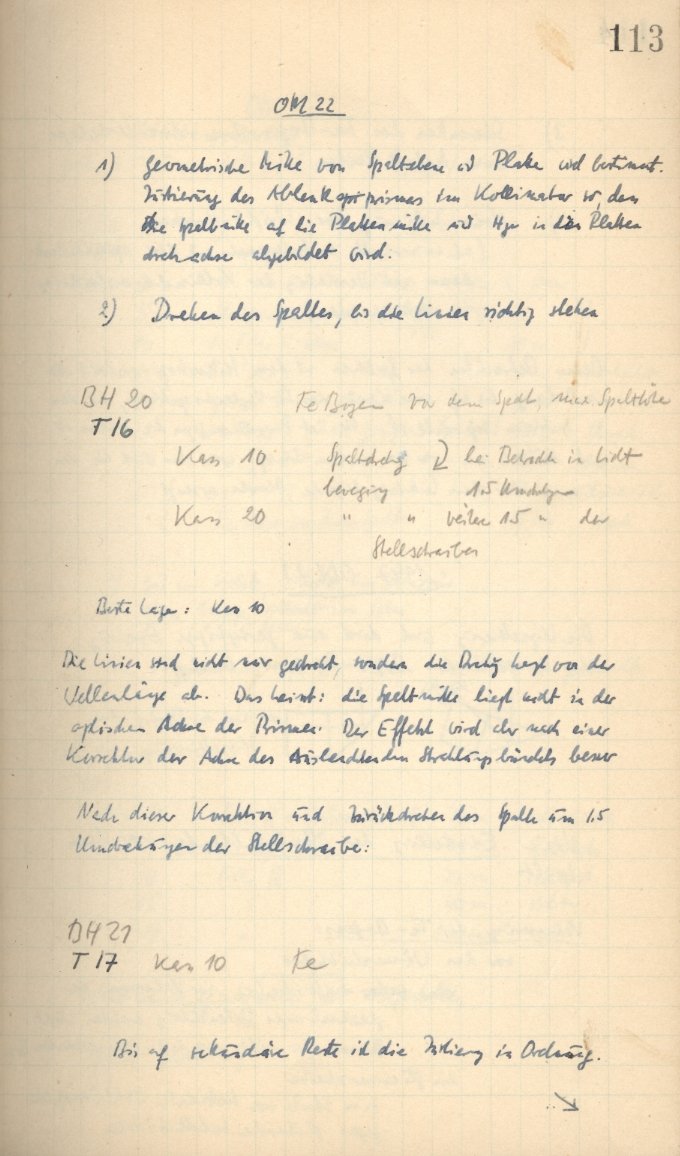 113
OM 22
1) Geometrische Mitte von Spaltebene und Platte wird bestimmt.
Justierung des Ablenkprismas im Kollimator so, dass
die Spaltmitte auf die Plattenmitte und in die Platten
drehachse abgebildet wird.
2.) Drehen des Spaltes, bis die Linien richtig stehen
BH 20 Fe Bogen vor dem Spalt, max Spalthöhe
T 16
Kass 10 Spaltdrehg bei Betracht in Licht
bewegung 1.5 Umdrehungen
Kass 20 " " weitere 1.5 " der
Stellschraube
Beste Lage: Kass 10
Die Linien sind nicht nur gedreht, sondern die Drehg hängt von der
Wellenlänge ab. Das heisst: die Spaltmitte liegt nicht in der
optischen Achse der Prismen. Der Effekt wird aber nach einer
Korrektur der Achse des ausleuchtenden Strahlungsbündels besser
Nach dieser Korrektion und Zurückdrehen des Spalts um 1.5
Umdrehungen der Stellschraube:
BH 21
T 17 Kass 10 Fe
Bis auf sekundäre Reste ist die Justierung in Ordnung.